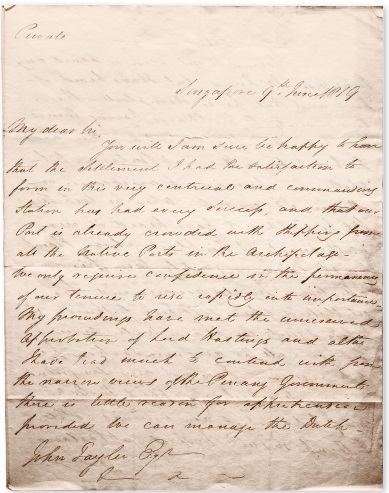 Private
Singapore 9th June 1819
My dear Sir,
You will I am sure be happy to hear
that the Settlement I had the satisfaction to
form in this very centrical and commanding
Station has had every success, and that our
Port is already crowded with shipping from
all the Native Ports in the Archipelago.
We only require confidence in the permanency
of our tenure to rise rapidly into importance
My proceedings have met the unreserved
Approbation of Lord Hastings and altho'
I have had much to contend with from
the narrow views of the Penang Government
there is little reason for apprehension
provided we can manage the Dutch
John Tayler Esqr